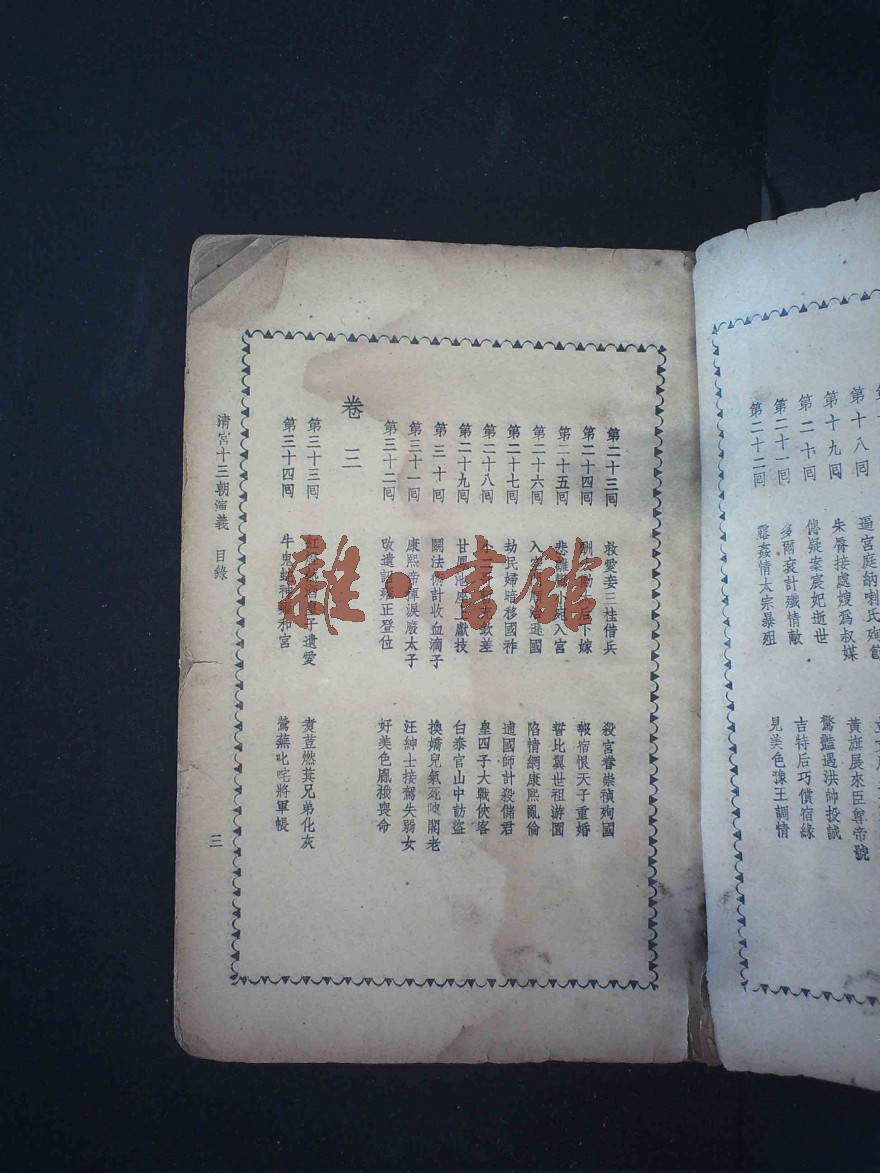 第十八回 逼宮庭納喇氏殉節
第十九回 朱脣接處嫂爲叔媒 黃旗晨來臣尊帝號
第二十回 傳疑案宸妃逝世 驚豔遇洪帥投誠
第二十一回 多爾袞計殲情敵 吉特后巧償宿緣
第二十二回 露姦情太宗暴殂 見美色豫王調情
第二十三回 救愛妾三桂借兵 殺宮眷崇禎殉國
第二十四回 后下嫁 報宿恨天子重婚
第二十五回 悲離 入宮 誓比翼世祖游園
第二十六回 入空 遜國 陷情網康熙亂倫
第二十七回 劫民婦暗移國祚 逋國師計殺儲君
第二十八回 欽差 皇四子大戰俠客
第二十九回 甘鳳池座上獻技 白泰官山中訪盜
第三十回 鬭法術計收血滴子 換嬌兒氣死陳閣老
第三十一回 康熙帝揮淚廢太子 汪紳士接駕失弱女
第三十二回 改遺詔雍正登位 好美色胤禩喪命
卷三
第三十三回 皇子遺愛 煮荳燃萁兄弟化灰
第三十四回 牛鬼蛇神雍和宮 鶯燕叱咤將軍帳
清宮十三朝演義 目錄
三
雜·書館